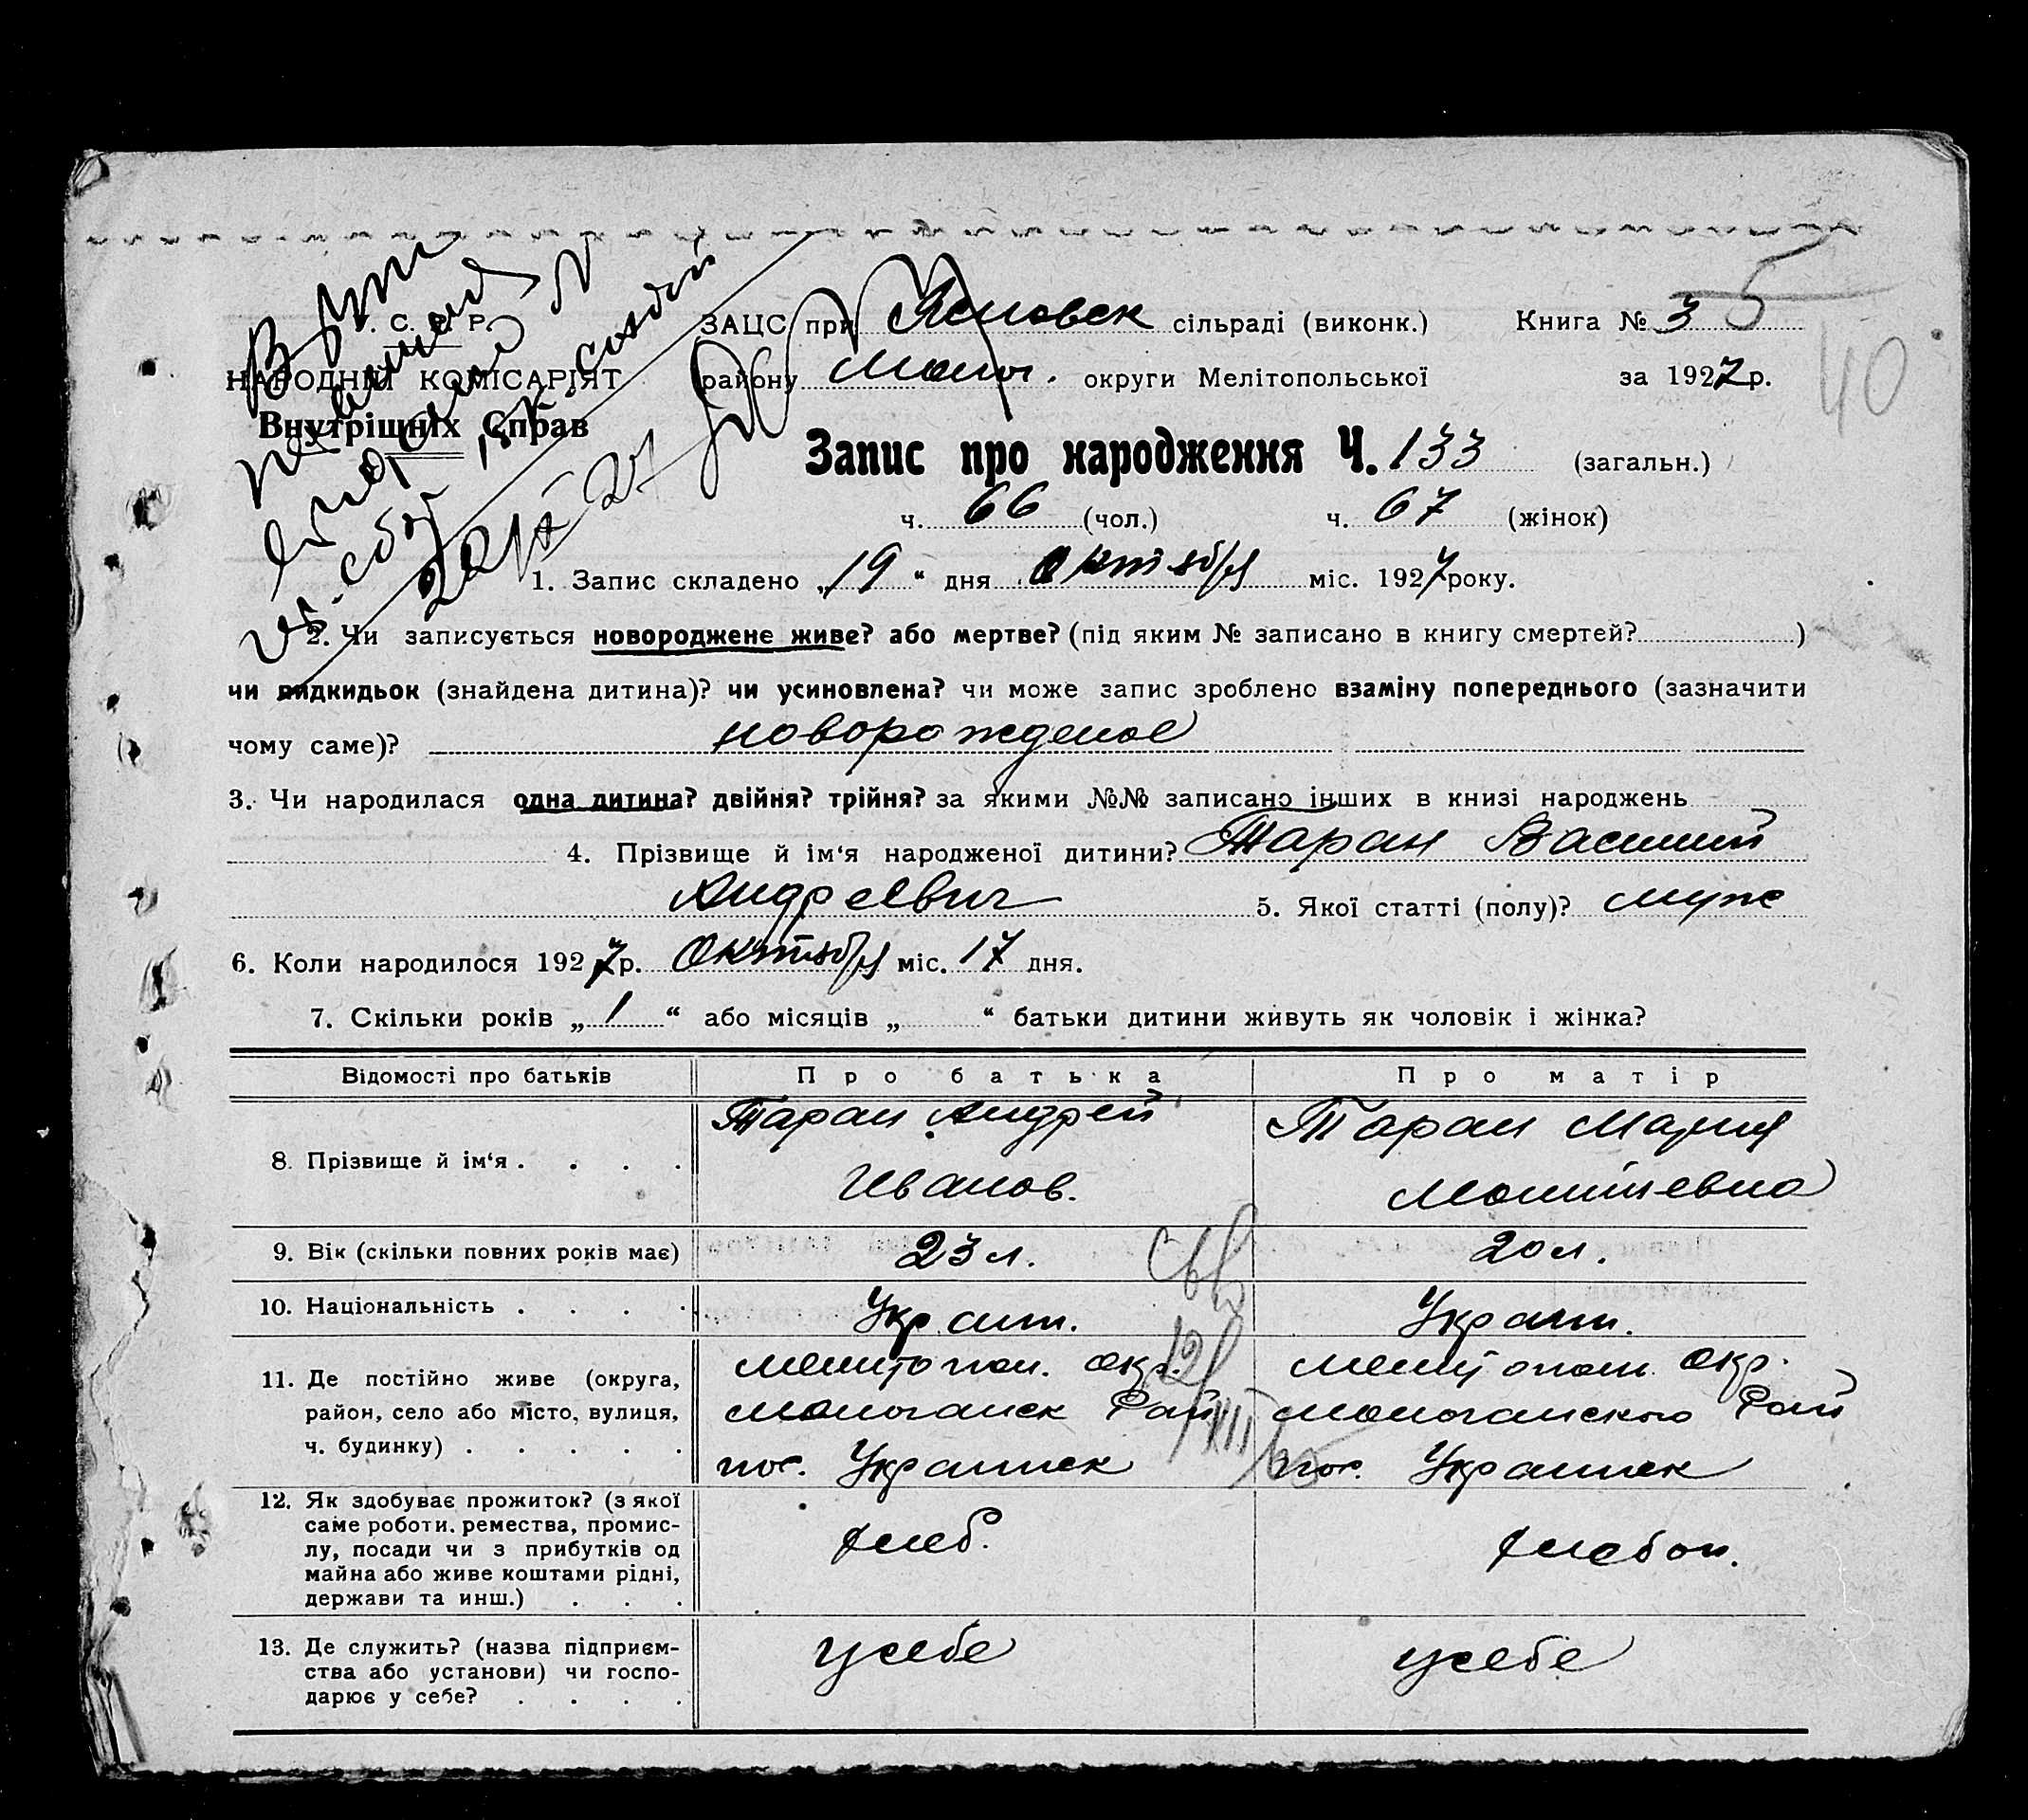 У. С. Р. Р.
НАРОДНІЙ КОМІСАРІЯТ
Внутрішніх Справ
ЗАЦС при сільраді (виконк.) Книга № 3 5
району Молоч. округи Мелітопольської за 1927р.
40
Запис про народження Ч. 133 (загальн.)
ч. 66 (чол.) ч. 67 (жінок)
1. Запис складено „19“ дня октября міс. 1927року.
2. Чи записується новороджене живе? або мертве? (під яким № записано в книгу смертей? )
чи підкидьок (знайдена дитина)? чи усиновлена? чи може запис зроблено взаміну попереднього (зазначити
чому саме)? новорожденое
3. Чи народилася одна дитина? двійня? трійня? за якими №№ записано інших в книзі народжень
4. Прізвище й ім‘я народженої дитини? Таран Василий
Андреевич 5. Якої статті (полу)? муж
6. Коли народилося 1927р. Октября міс. 17 дня.
7. Скільки років „1“ або місяців „ “ батьки дитини живуть як чоловік і жінка?
Відомості про батьків Про батька Про матір
8. Прізвище й ім‘я . . . . Таран Андрей Иванов. Таран Мария
9. Вік (скільки повних років має) 23 л. 20 л.
10. Національність . . . . Украин. Украин.
11. Де постійно живе (округа, Мелитопол. окр. Мелитопол. окр.
район, село або місто, вулиця, Молочанск Рай. Молочанского Рай
ч. будинку) . . . . . пос. Украинск пос. Украинск
12. Як здобуває прожиток? (з якої
саме роботи, ремества, промис-
лу, посади чи з прибутків од хлеб. хлебоп.
майна або живе коштами рідні,
держави та инш.) . . .
13. Де служить? (назва підприєм- у себе у себе
ства або установи) чи госпо-
дарює у себе? . . . .